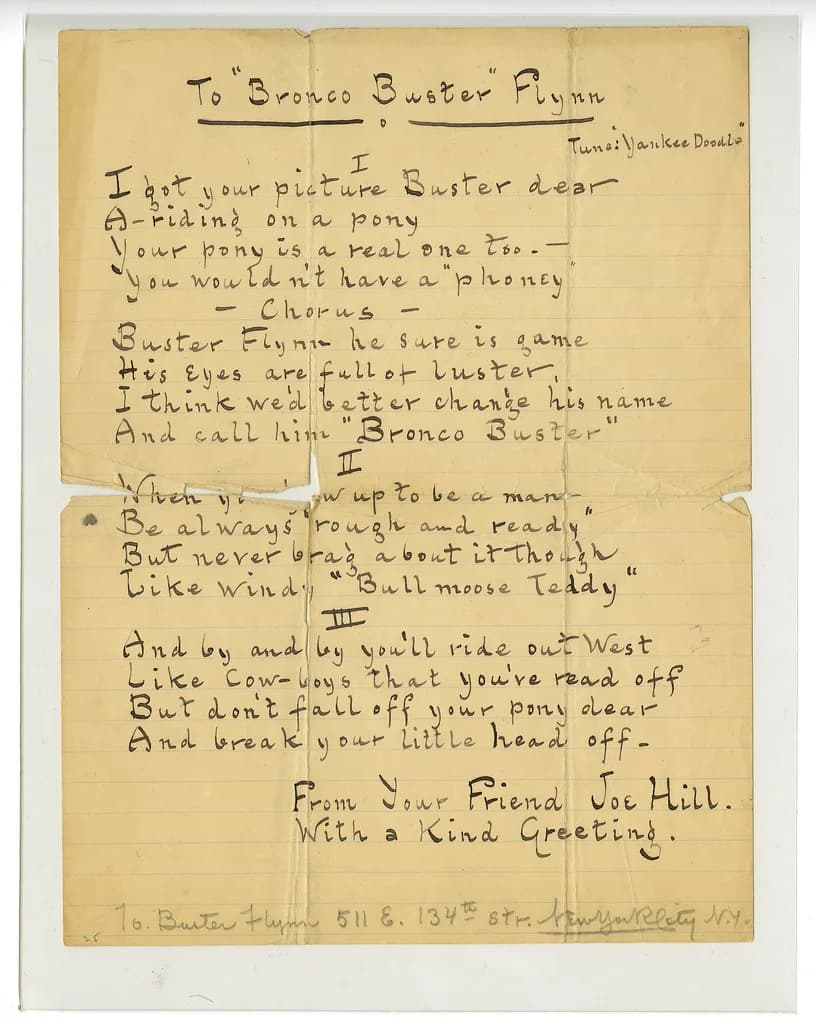 To "Bronco Buster" Flynn
Tune: "Yankee Doodle"
I
I got your picture Buster dear
A-riding on a pony
Your pony is a real one too. —
You wouldn't have a "phoney"
— Chorus —
Buster Flynn he sure is game
His Eyes are full of luster,
I think we'd better change his name
And call him "Bronco Buster"
II
When up to be a man—
Be always "rough and ready"
But never brag about it though
Like windy "Bull moose Teddy"
III
And by and by you'll ride out West
Like Cow-boys that you've read off
But don't fall off your pony dear
And break your little head off—
From Your Friend Joe Hill.
With a Kind Greeting.
To. Buster Flynn 511 E. 134th Str. New York City N.Y.
25